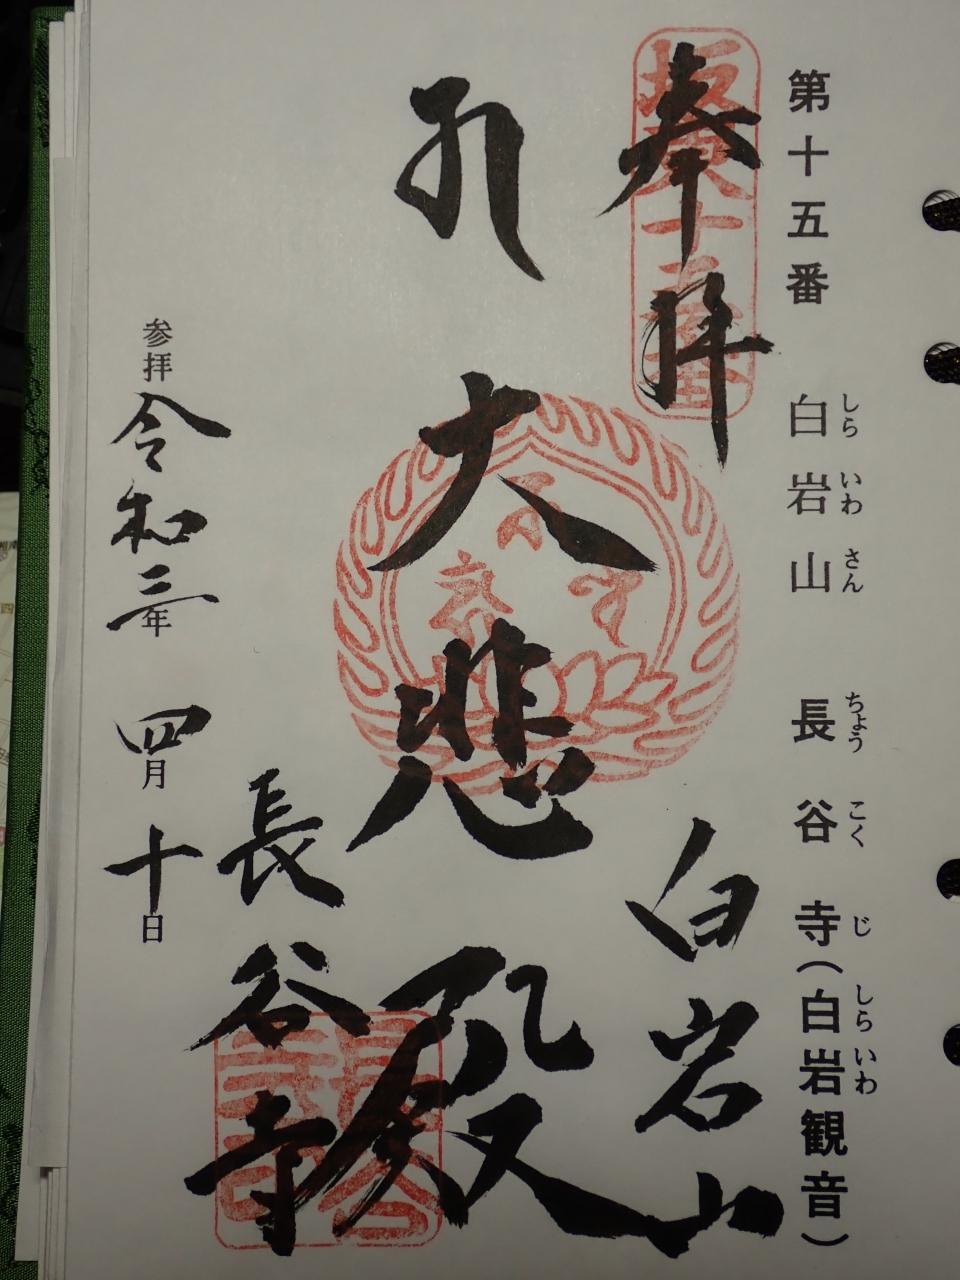 第十五番 白岩山 長谷寺(白岩観音)
しらいわさん ちょうこくじ しらいわ
奉拝
坂東十五番
白岩山
大悲殿
長谷寺
参拝 令和三年 四月 十日